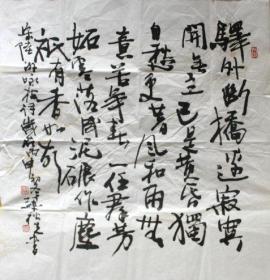 驛外斷橋邊寂寞
開無主已是黃昏獨
自愁更著風和雨無
意苦爭春一任羣芳
妬零落成泥碾作塵
祇有香如故
宋陸游詠梅詞